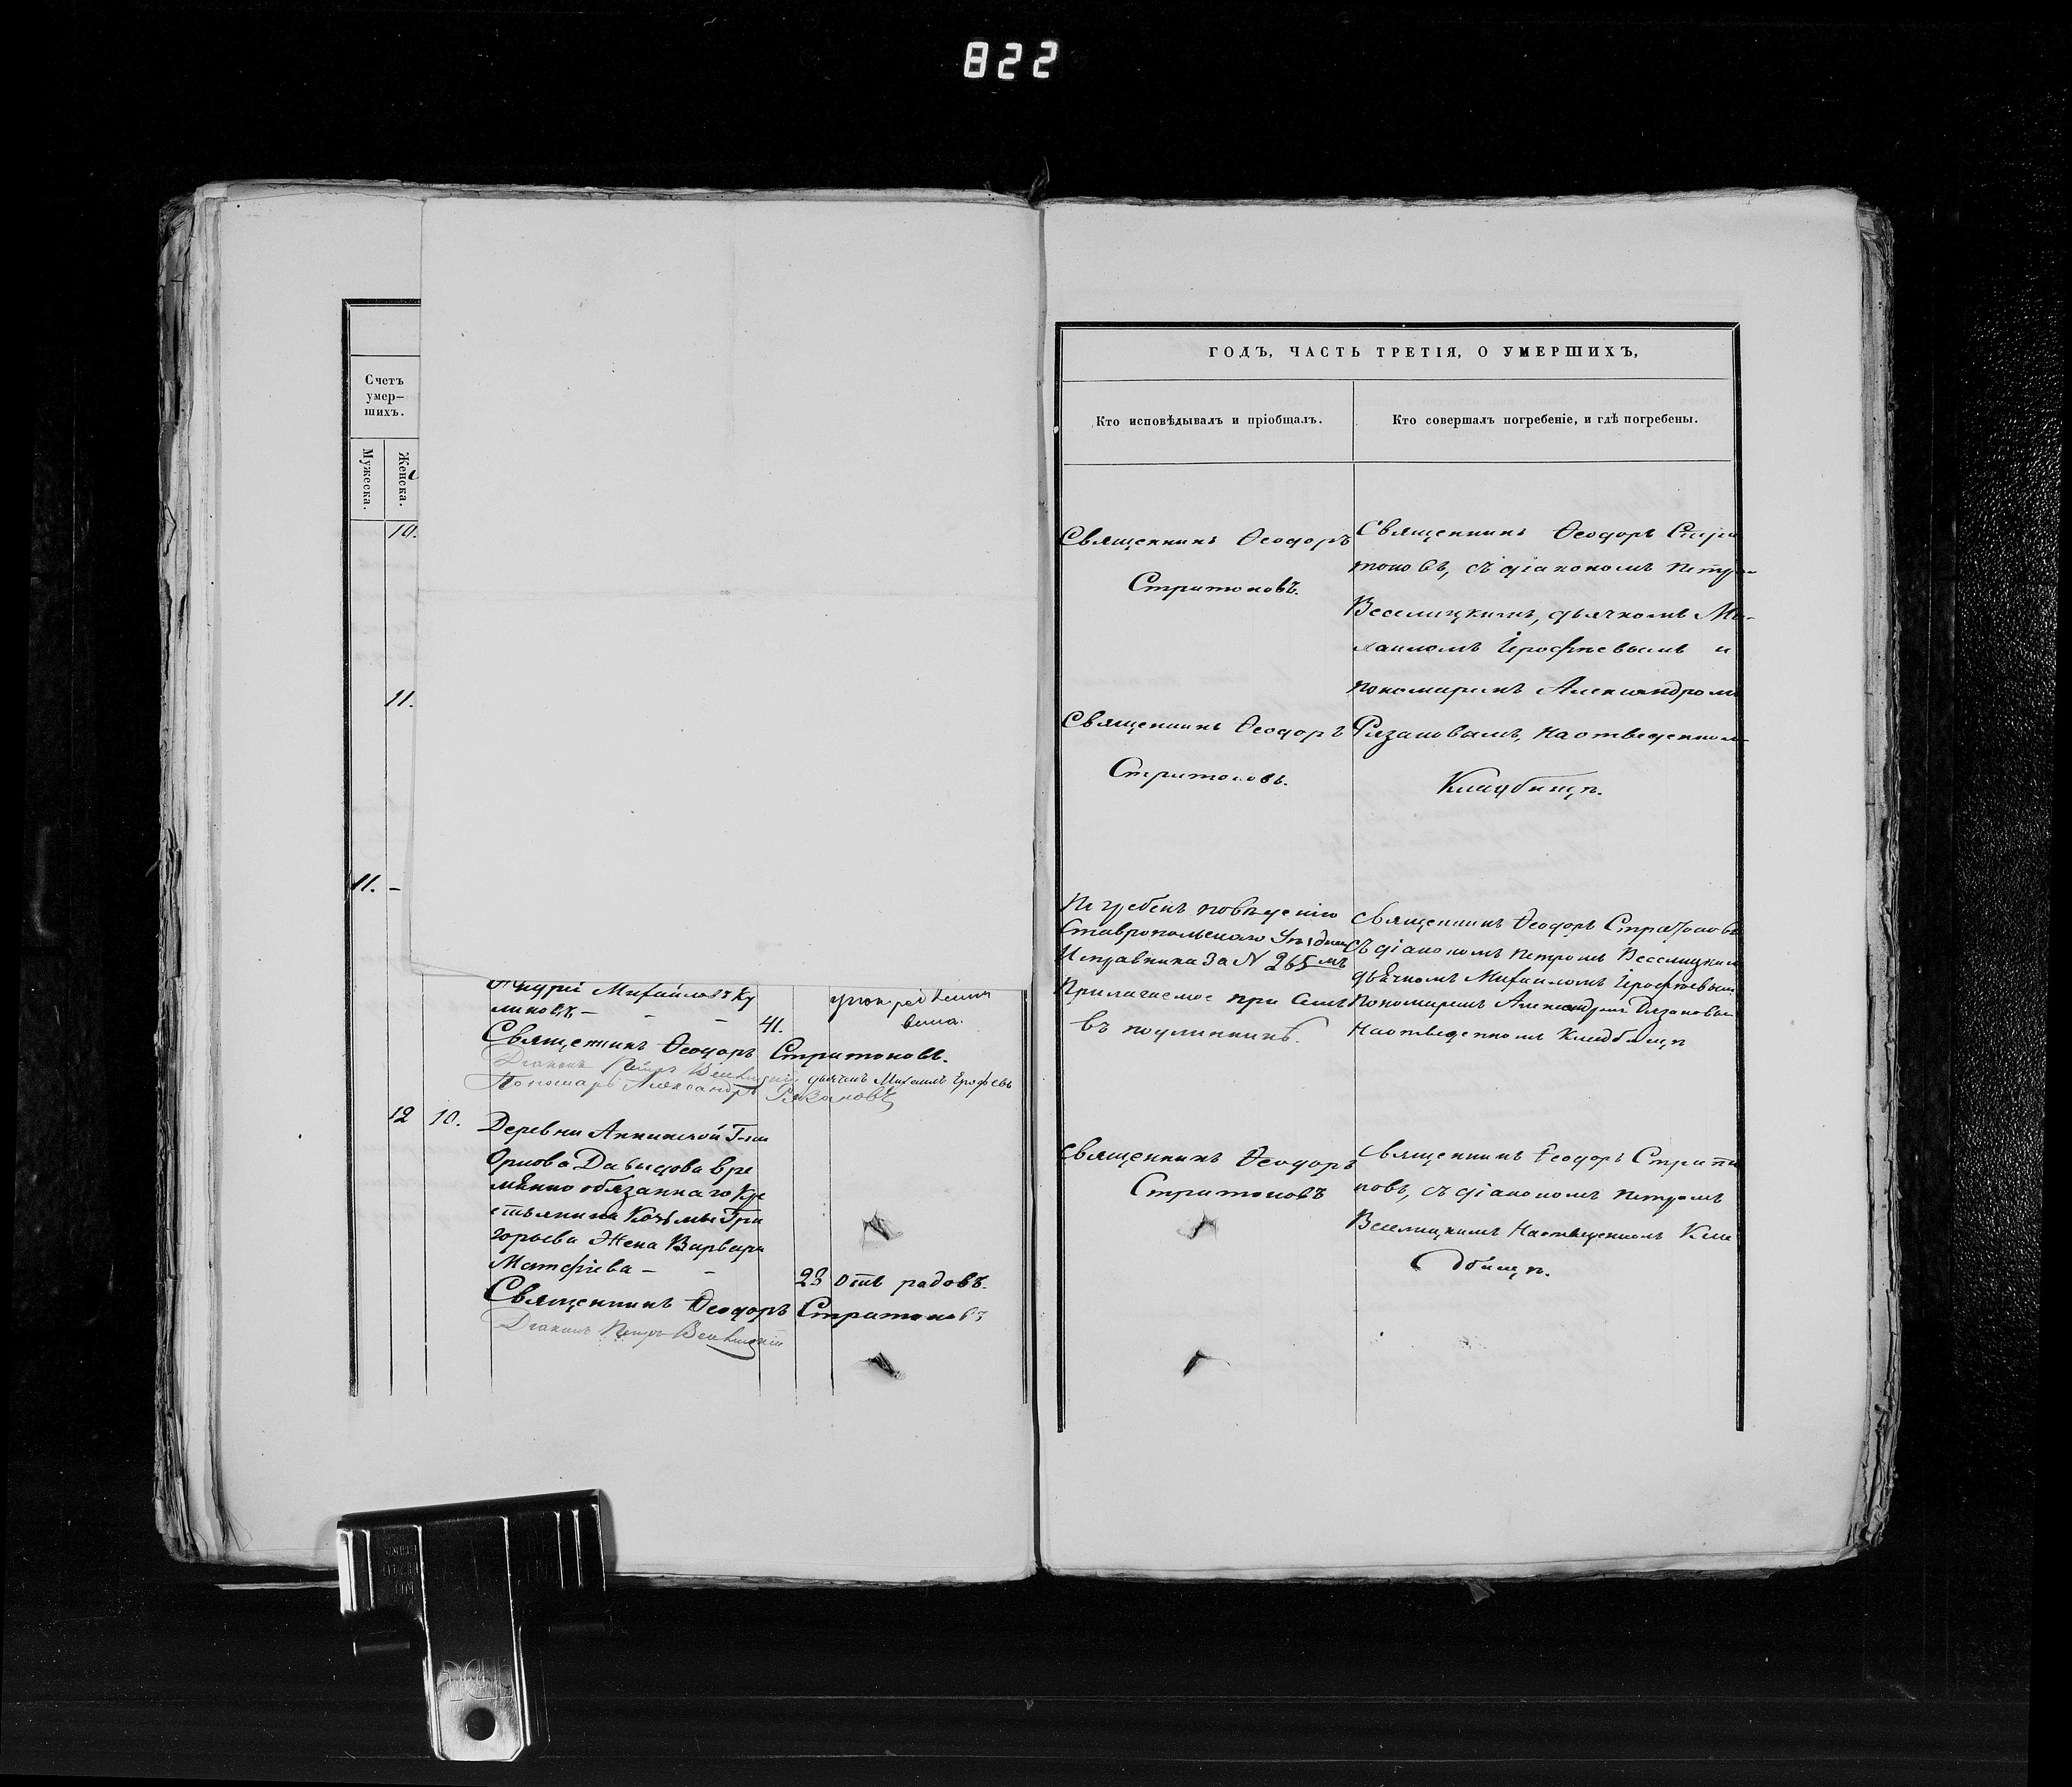 822
Счетъ
умер–
шихъ.
Мужеска.
Женска.
10.
11.
11. –
Михайловъ Ку
ликовъ – – –
41.
вина.
Священникъ Ѳеодоръ Стратоновъ.
Діаконъ Петръ дьячекъ Михаилъ Ерофѣевъ
Пономарь Александръ Рязановъ
12 10. Деревни Аннинской Г-на
Орлова Давыдова вре
мѣнно обязаннаго Кре
стьянина Козьмы Гри
горьева Жена Варвара
Матфіева – –
23 отъ радовъ.
Священникъ Ѳеодоръ Стратоновъ
Діаконъ Петръ
ГОДЪ, ЧАСТЬ ТРЕТІЯ, О УМЕРШИХЪ,
Кто исповѣдывалъ и пріобщалъ.
Кто совершалъ погребеніе, и гдѣ погребены.
Священникъ Ѳеодоръ
Стратоновъ.
Священникъ Ѳеодоръ Стра
тоновъ, съ діакономъ Петро-
Веселицкимъ, дьячкомъ Ми-
хаиломъ Іерофѣевымъ и
пономаремъ Александромъ
Рязановымъ, на отведенном-
Кладбищѣ.
Священникъ Ѳеодоръ
Стратоновъ.
Погребенъ по вѣденію
Ставропольскаго Уѣздна
Исправника За N 265 мъ
Прилагаемое при семъ
въ подлинникѣ.
Священникъ Ѳеодоръ Стратоновъ
съ діакономъ Петромъ Веселицким
дьячкомъ Михаиломъ Іерофѣевым
Пономаремъ Александром Рязановы
На отведенномъ Кладбищѣ
Священникъ Ѳеодоръ
Стратоновъ
Священникъ Ѳеодоръ Страто
новъ, съ діакономъ Петромъ
Веселицкимъ На отведенномъ Кла
дбищѣ.